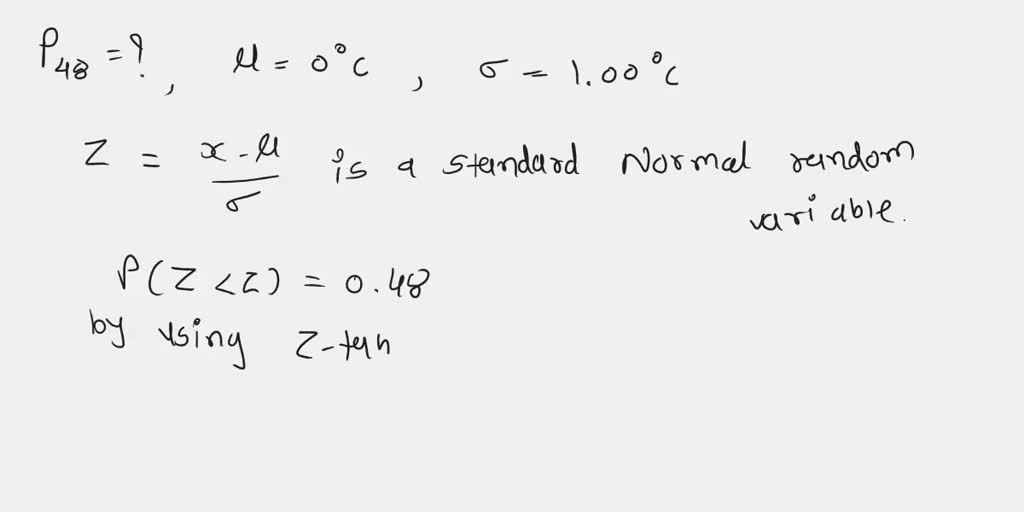 P₄₈ = ?, μ = 0°C, σ = 1.00°C
Z = (x - μ)/σ is a standard Normal random
variable.
P(Z < z) = 0.48
by using Z-